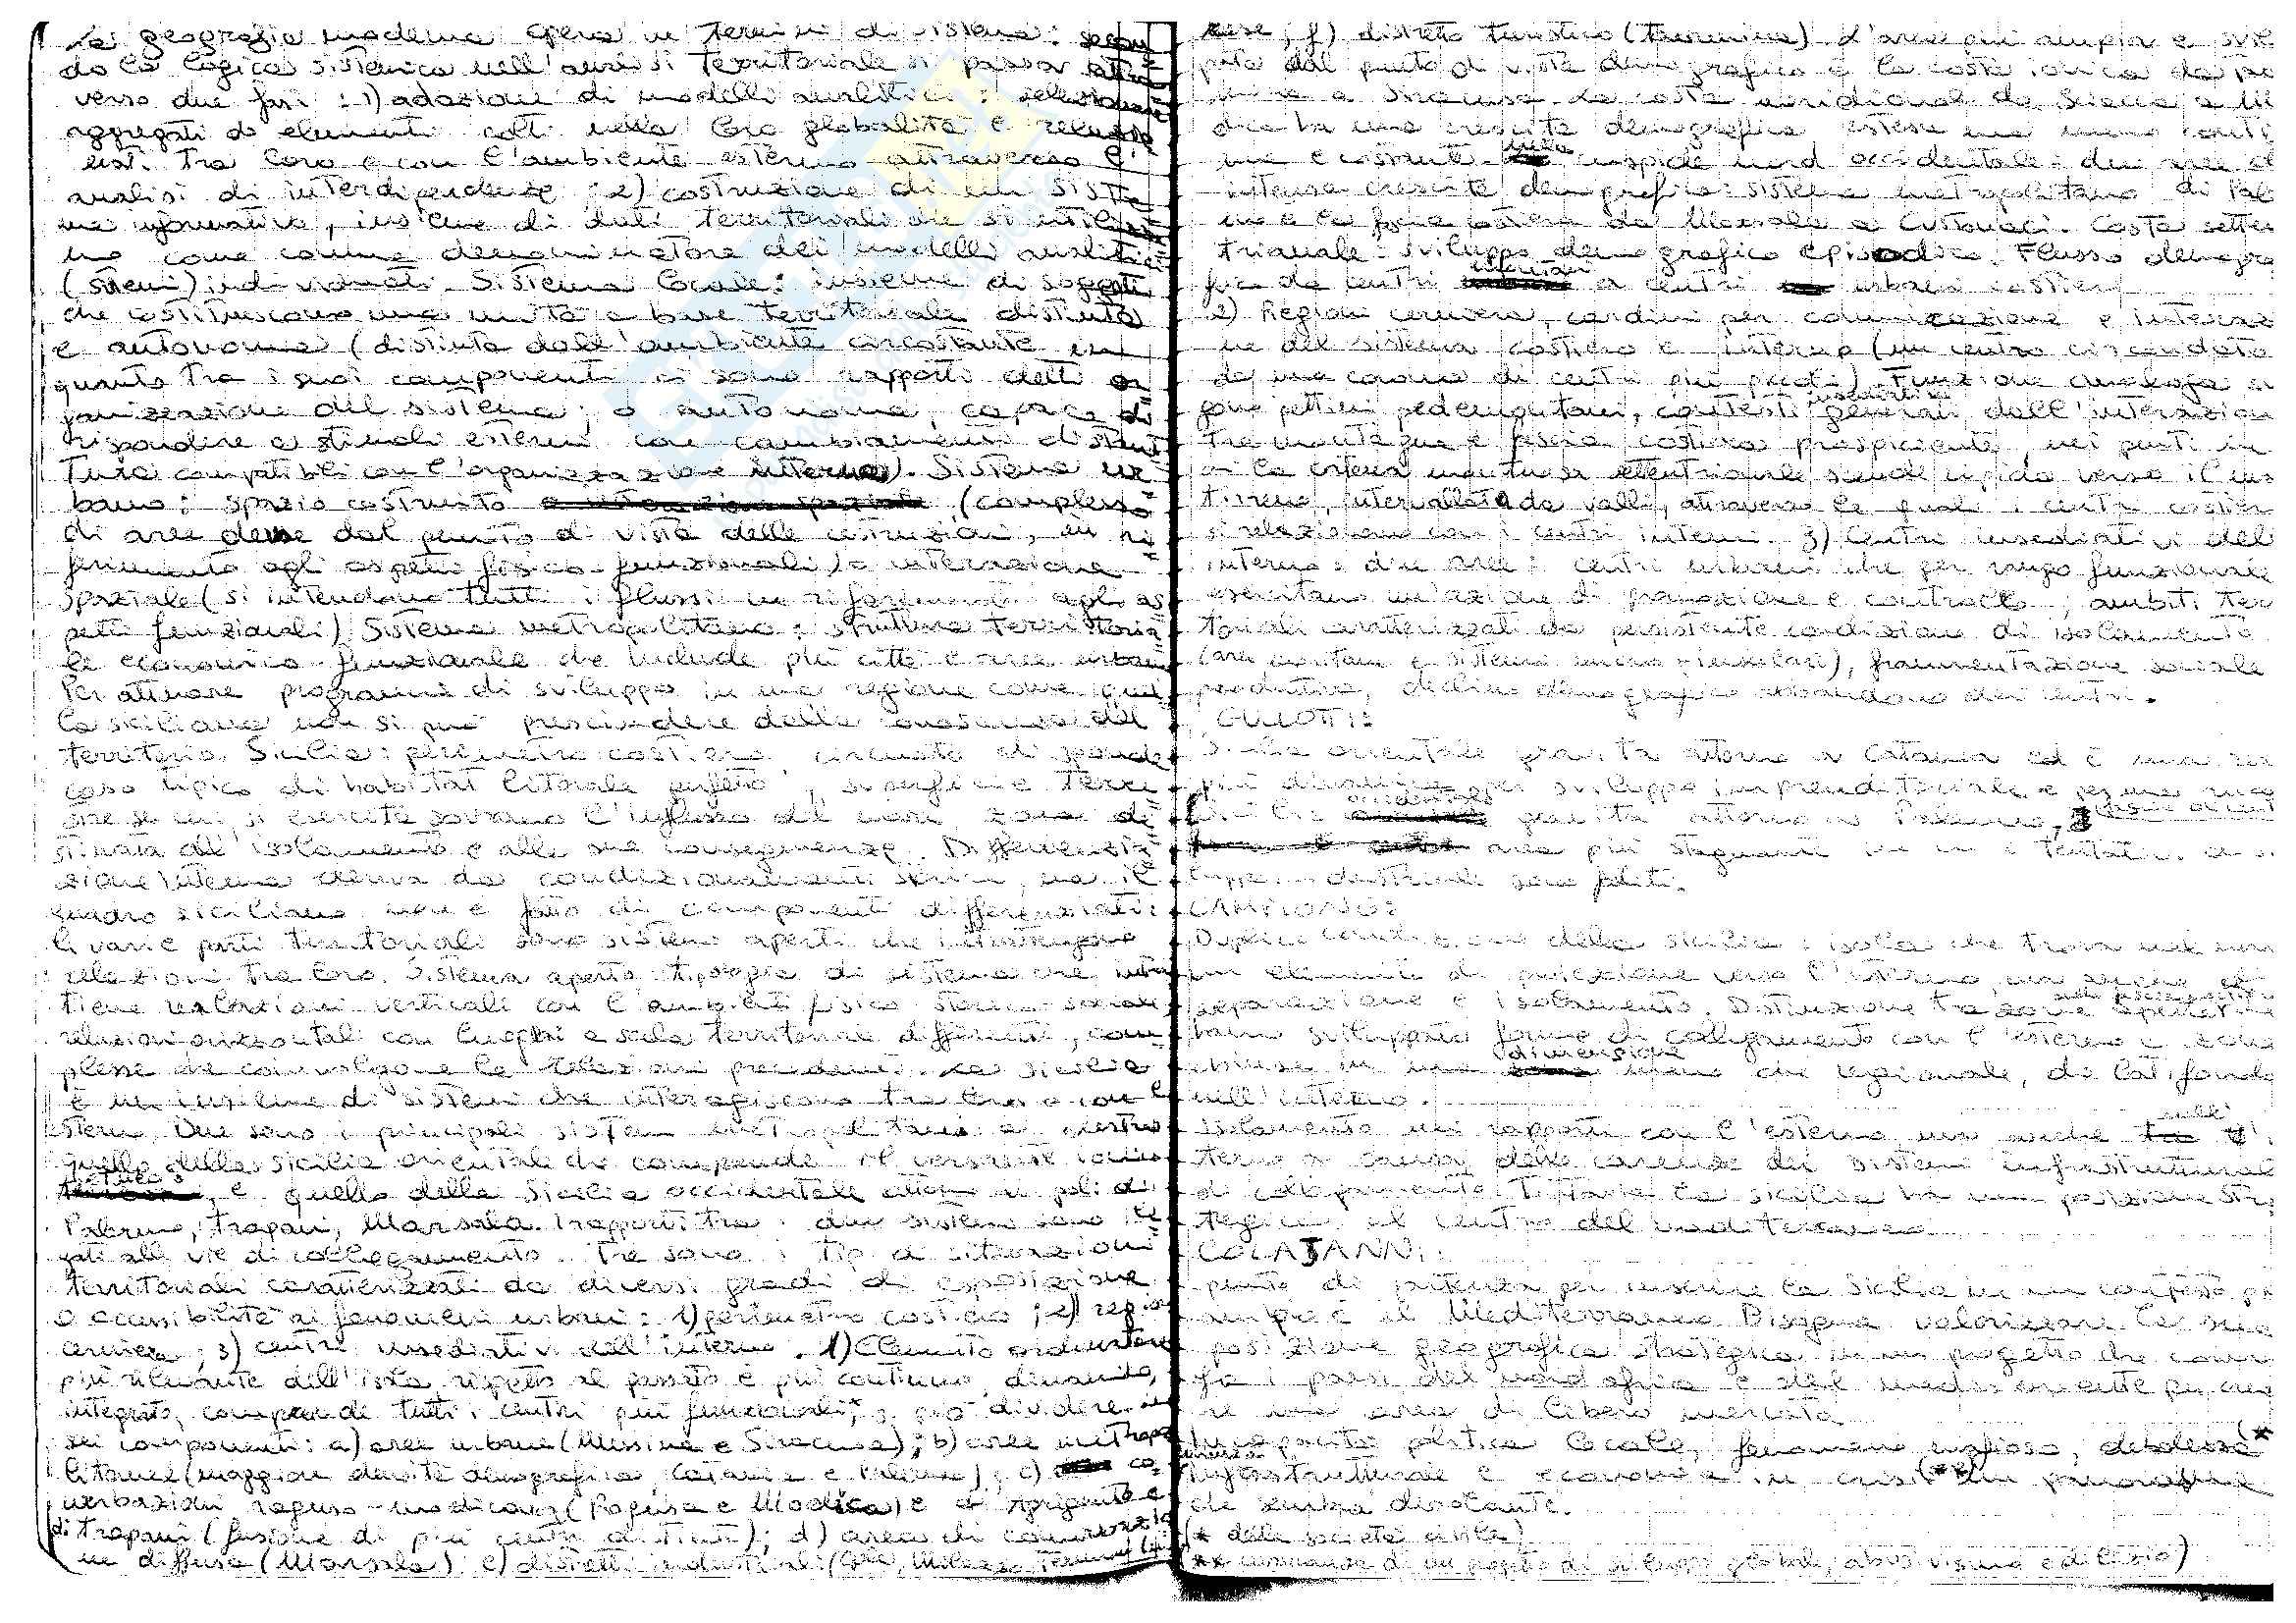 La geografia moderna opera in termini di sistema: secon
do la logica sistemica nell'analisi territoriale si passa attra
verso due fasi: 1) adozione di modelli analitici: selezionare
aggregati di elementi colti nella loro globalità e relazio
nati tra loro e con l'ambiente esterno attraverso l'
analisi di interdipendenze; 2) costruzione di un siste
ma informativo, insieme di dati territoriali che si utilizza
no come comune denominatore dei modelli analitici
(sistemi) individuati. Sistema locale: insieme di soggetti
che costituiscono una unità a base territoriale distinta
e autonoma (distinta dall'ambiente circostante in
quanto tra i suoi componenti ci sono rapporti detti or
ganizzazione del sistema; o autonoma, capace di
rispondere a stimoli esterni con cambiamenti di strut
tura compatibili con l'organizzazione interna). Sistema ur
bano: spazio costruito (complesso
di aree dense dal punto di vista delle costruzioni, in ri
ferimento agli aspetti fisico-funzionali) e interazione
spaziale (si intendono tutti i flussi in riferimento agli as
petti funzionali) Sistema metropolitano: struttura territoria
le economico-funzionale che include più città e aree urbane
Per attuare programmi di sviluppo in una regione come quel
la siciliana non si può prescindere dalla conoscenza del
territorio. Sicilia: perimetro costiero circuito di sponde
caso tipico di habitat litorale perfetto; superficie terre
stre su cui si esercita sovrano l'influsso del mare, zona de
stinata all'isolamento e alle sue conseguenze. Differenzia
zione interna deriva da condizionamenti storici, ma il
quadro siciliano non è fatto di componenti differenziati:
le varie parti territoriali sono sistemi aperti che intrattengono
relazioni tra loro. Sistema aperto: tipologia di sistema che intra
tiene relazioni verticali con l'ambiente fisico storico-sociale
relazioni orizzontali con luoghi e scale territoriali differenti, com
plesse che coinvolgono le relazioni precedenti. La Sicilia
è un insieme di sistemi che interagiscono tra loro e con l'e
sterno. Due sono i principali sistemi metropolitani
quello della Sicilia orientale che comprende il versante ionico
e quello della Sicilia occidentale attorno ai poli di
Palermo, Trapani, Marsala. I rapporti tra i due sistemi sono le
gati alle vie di collegamento. Tre sono i tipi di situazioni
territoriali caratterizzati da diversi gradi di esposizione
e accessibilità ai fenomeni urbani: 1) perimetro costiero; 2) regioni
cerniera; 3) centri insediativi dell'interno. 1) Elemento ordinatore
più rilevante dell'isola rispetto al passato è più continuo, dinamico,
integrato, comprende tutti i centri più funzionali; si può dividere in
sei componenti: a) aree urbane (Messina e Siracusa); b) aree metropo
litane (maggiore densità demografica, Catania e Palermo); c) co
nurbazioni raguso-modicana (Ragusa e Modica) e di Agrigento e
di Trapani (fusione di più centri distinti); d) area di conurbazio
ne diffusa (Marsala) e) distretti industriali (Gela, Milazzo, Termini Ime
rese; f) distretto turistico (Taormina). L'area più ampia e svilup
pata dal punto di vista demografico è la costa ionica da Taor
mina a Siracusa. La costa meridionale da Sciacca a
ha una crescita demografica estesa ma meno conti
nua e costante. Nella cuspide nord occidentale: due aree di
intensa crescita demografica: sistema metropolitano di Paler
mo e la fascia costiera da Marsala a Custonaci. Costa setten
trionale: sviluppo demografico episodico. Flusso demogra
fico da centri interiori a centri urbani costieri
2) Regioni cerniera, cardini per comunicazione e interazio
ne del sistema costiero e interno (un centro circondato
da una corona di centri più piccoli). Funzione analoga
pettini pedemontani, contesti insediativi generati dall'interazione
tra montagna e fascia costiera prospiciente, nei punti in
cui la catena montuosa settentrionale scende ripida verso il mar
tirreno, intervallata da valli, attraverso le quali i centri costieri
si relazionano con i centri interni. 3) Centri insediativi dell'
interno: due aree: centri urbani che per rango funzionale
esercitano un'azione di promozione e controllo; ambiti terri
toriali caratterizzati da persistente condizione di isolamento
(aree montane e sistemi micro-insulari), frammentazione sociale
produttiva, declino demografico abbandono dei centri.
GULLOTTI:
Sicilia orientale gravita attorno a Catania ed è una
più dinamica per sviluppo imprenditoriale e per una
Sicilia occidentale gravita attorno a Palermo,
area più stagnante in cui i tentativi di svi
luppo industriale sono falliti.
CAMPIONE:
Duplice condizione della Sicilia: isola che trova nel mare
un elemento di proiezione verso l'esterno, ma anche di
separazione e isolamento. Distinzione tra zone aperte che
hanno sviluppato forme di collegamento con l'esterno e zone
chiuse in una dimensione meno che regionale, di latifondo
nell'interno.
Isolamento nei rapporti con l'esterno ma anche nell'in
terno a causa delle carenze dei sistemi infrastrutturali
di collegamento. Tuttavia la Sicilia ha una posizione stra
tegica al centro del mediterraneo
COLAJANNI:
punto di partenza per inserire la Sicilia in un contesto più
ampio è il Mediterraneo. Bisogna valorizzare la sua
posizione geografica strategica in un progetto che coinvol
ga i paesi del nord africa e del medio oriente per crea
re una area di libero mercato
Incapacità politica locale, fenomeno mafioso, debolezza (*
infrastrutturale e economia in crisi (** un panorama
che sembra desolante.
(* della società civile)
** mancanza di un progetto di sviluppo globale, abusivismo edilizio)